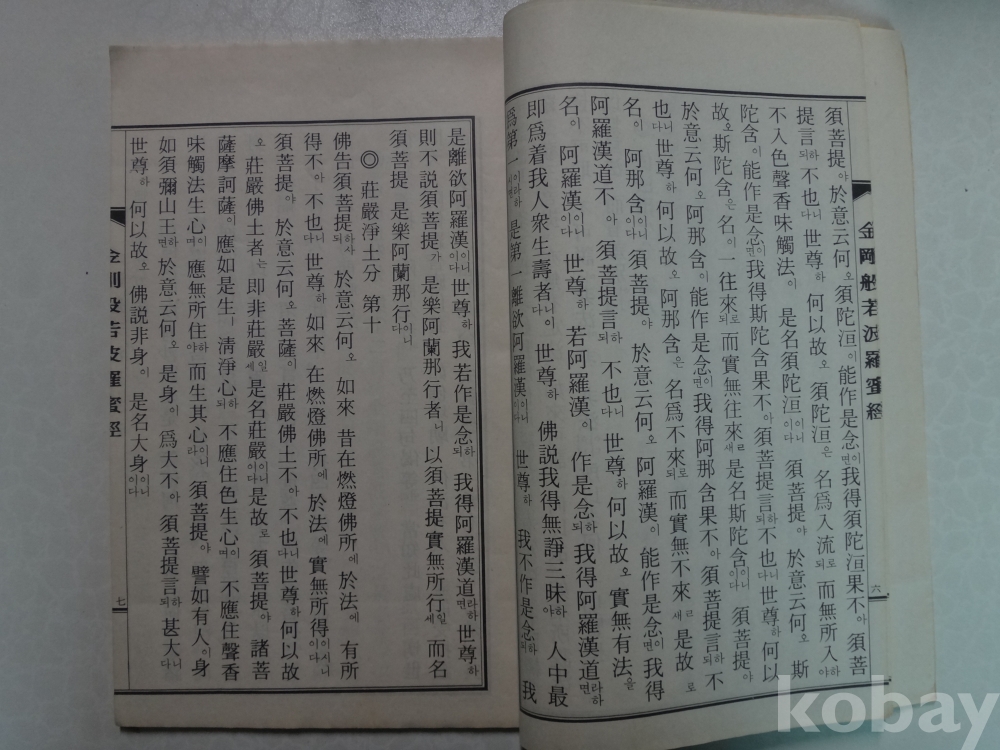 金剛般若波羅蜜經 六
須菩提야於意云何오須陀洹이能作是念이면我得須陀洹果不아 須菩
提言하되不也니다世尊하何以故오 須陀洹은 名爲入流로되而無所入하야
不入色聲香味觸法이 是名須陀洹이니이다 須菩提야 於意云何오 斯
陀含이能作是念이면我得斯陀含果不아須菩提言하되不也니다世尊하何以
故오斯陀含은名이一往來로되而實無往來ㄹ새是名斯陀含이니이다 須菩提야
於意云何오阿那含이能作是念이면我得阿那含果不아須菩提言하되不
也니다世尊하 何以故오 阿那含은名爲不來로되 而實無不來ㄹ새 是故로
名이 阿那含이니이다 須菩提야 於意云何오 阿羅漢이 能作是念이면我得
阿羅漢道不아 須菩提言하되 不也니다 世尊하何以故오 實無有法을
名이 阿羅漢이니이다 世尊하 若阿羅漢이 作是念하되 我得阿羅漢道라하면
即爲着我人衆生壽者니이다 世尊하 佛說我得無諍三昧하야 人中最
爲第一이라하면 是第一離欲阿羅漢이니이다 世尊하 我不作是念하되 我
是離欲阿羅漢이니이다世尊하 我若作是念하되 我得阿羅漢道라하면世尊하
則不說須菩提가 是樂阿蘭那行者니 以須菩提實無所行일세而名
須菩提 是樂阿蘭那行이니이다
◎ 莊嚴淨土分 第十
佛告須菩提하사되 於意云何오 如來 昔在燃燈佛所에於法에 有所
得不아 不也니다世尊하 如來 在燃燈佛所에 於法에 實無所得이시니이다
須菩提야 於意云何오 菩薩이 莊嚴佛土不아 不也니다世尊하何以故
오 莊嚴佛土者는 即非莊嚴일세是名莊嚴이니이다是故로 須菩提야 諸菩
薩摩訶薩이 應如是生ㅣ淸淨心하되 不應住色生心이며 不應住聲香
味觸法生心이며 應無所住하야而生其心이니라 須菩提야 譬如有人이身
如須彌山王하면 於意云何오 是身이 爲大不아 須菩提言하되 甚大니다
世尊하 何以故오 佛說非身이 是名大身이니이다
金剛般若波羅蜜經 七
kobay